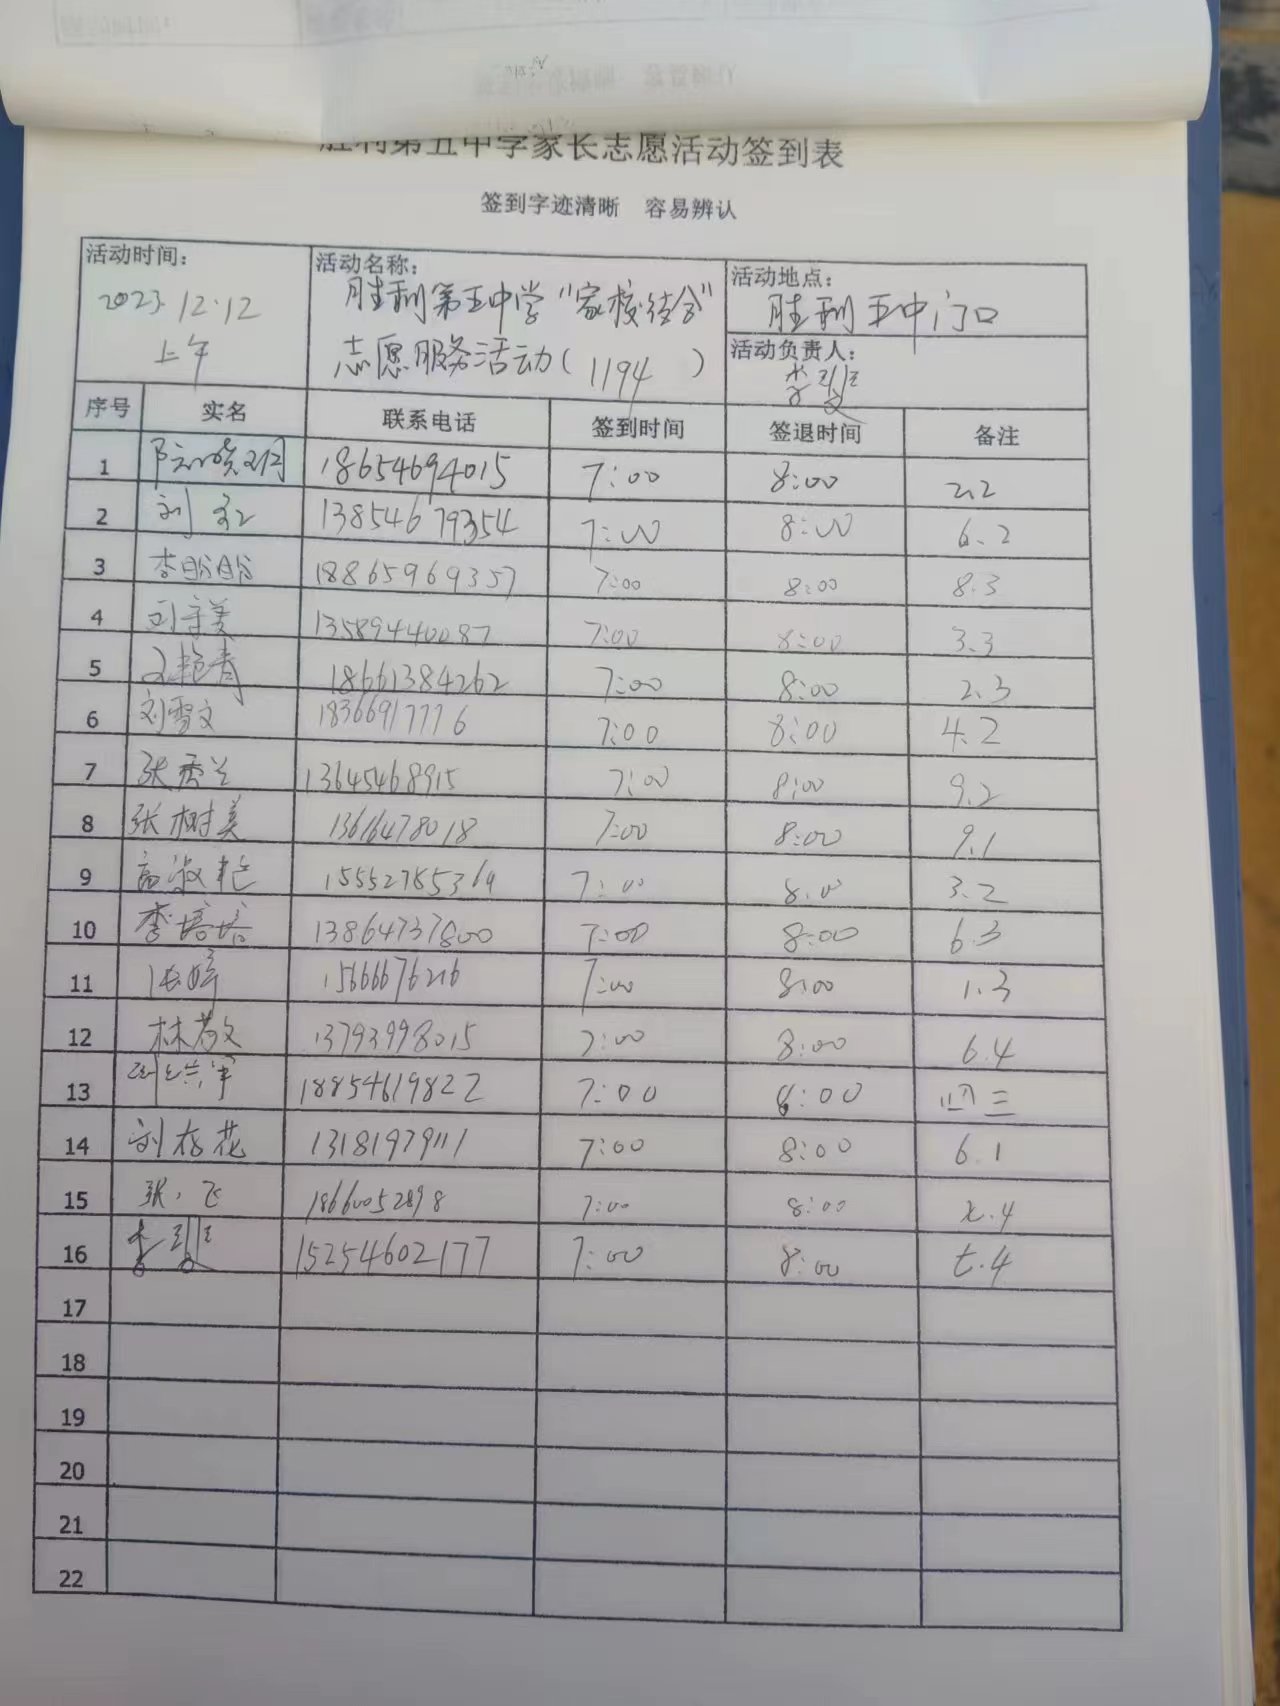 胜利第五中学家长志愿活动签到表
签到字迹清晰 容易辨认
活动时间：
2023.12.12
上午
活动名称：
胜利第五中学“家校结合”
志愿服务活动（1194）
活动地点：
胜利五中门口
活动负责人：
序号 实名 联系电话 签到时间 签退时间 备注
1 18654694015 7:00 8:00 2.2
2 刘红 13854679354 7:00 8:00 6.2
3 李盼盼 18865969357 7:00 8:00 8.3
4 刘守美 13589440087 7:00 8:00 3.3
5 18661384262 7:00 8:00 2.3
6 刘雪文 18366917776 7:00 8:00 4.2
7 张秀兰 13645468915 7:00 8:00 9.2
8 张树美 13616478018 7:00 8:00 9.1
9 高淑艳 15552785369 7:00 8:00 3.2
10 李培培 13864737800 7:00 8:00 6.3
11 张婷 15666676216 7:00 8:00 1.3
12 林敬文 13793998015 7:00 8:00 6.4
13 18854619822 7:00 8:00 四三
14 刘存花 13181979111 7:00 8:00 6.1
15 张飞 18660052898 7:00 8:00
16 15254602177 7:00 8:00 七.4
17
18
19
20
21
22